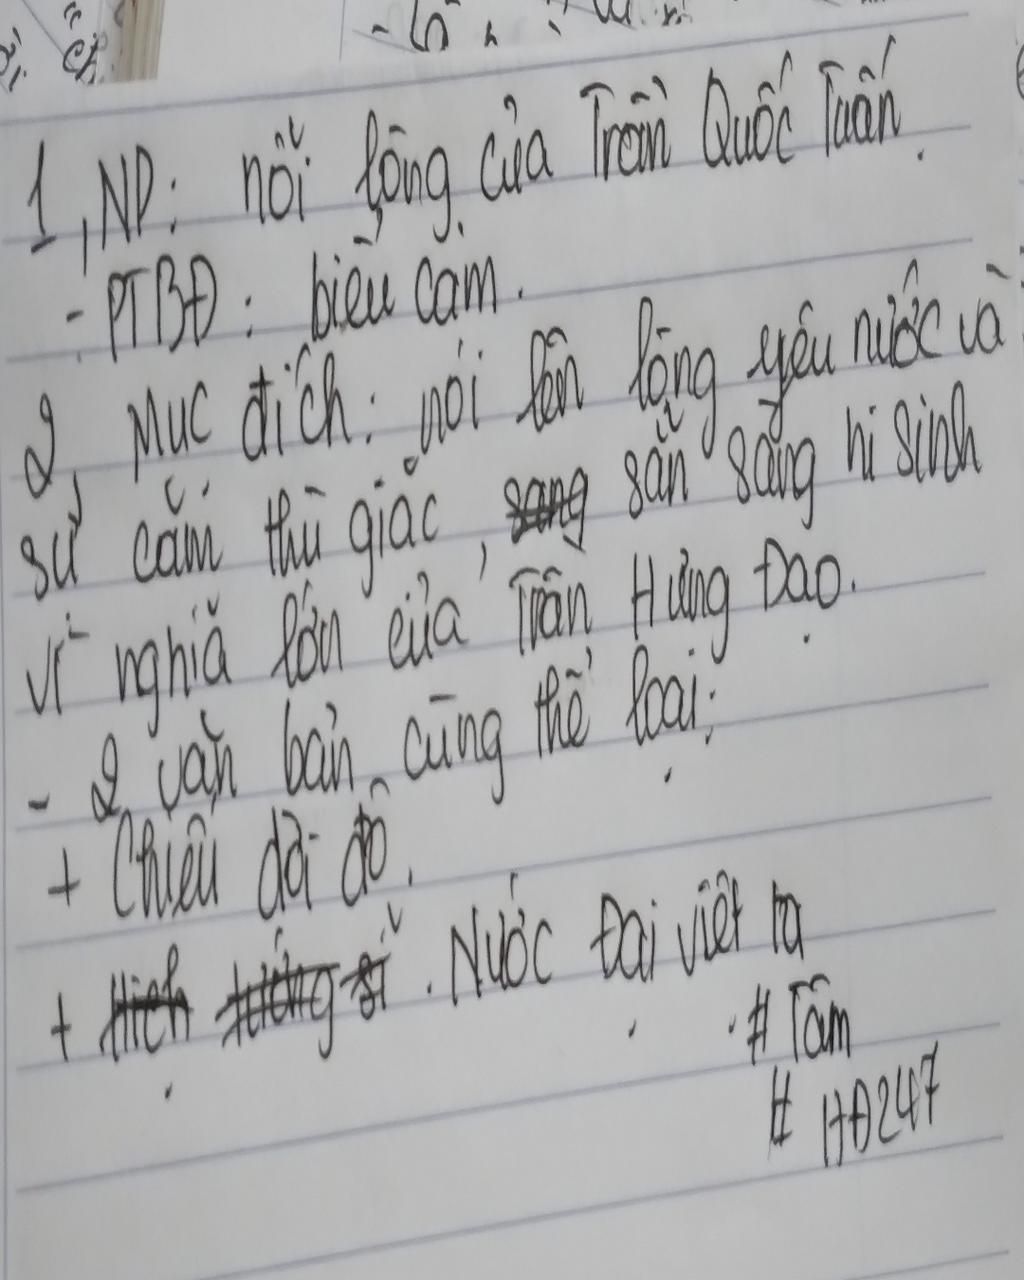 1, NP: nỗi lòng của Trần Quốc Tuấn.
- PTBĐ: biểu cảm.
2, Mục đích: nói lên lòng yêu nước và
sự căm thù giặc, sẵn sàng hi sinh
vì nghĩa lớn của Trần Hưng Đạo.
- 2 văn bản cùng thể loại:
+ Chiếu dời đô.
+ Hịch tướng sĩ. Nước Đại việt ta
# Tâm
# HĐ247